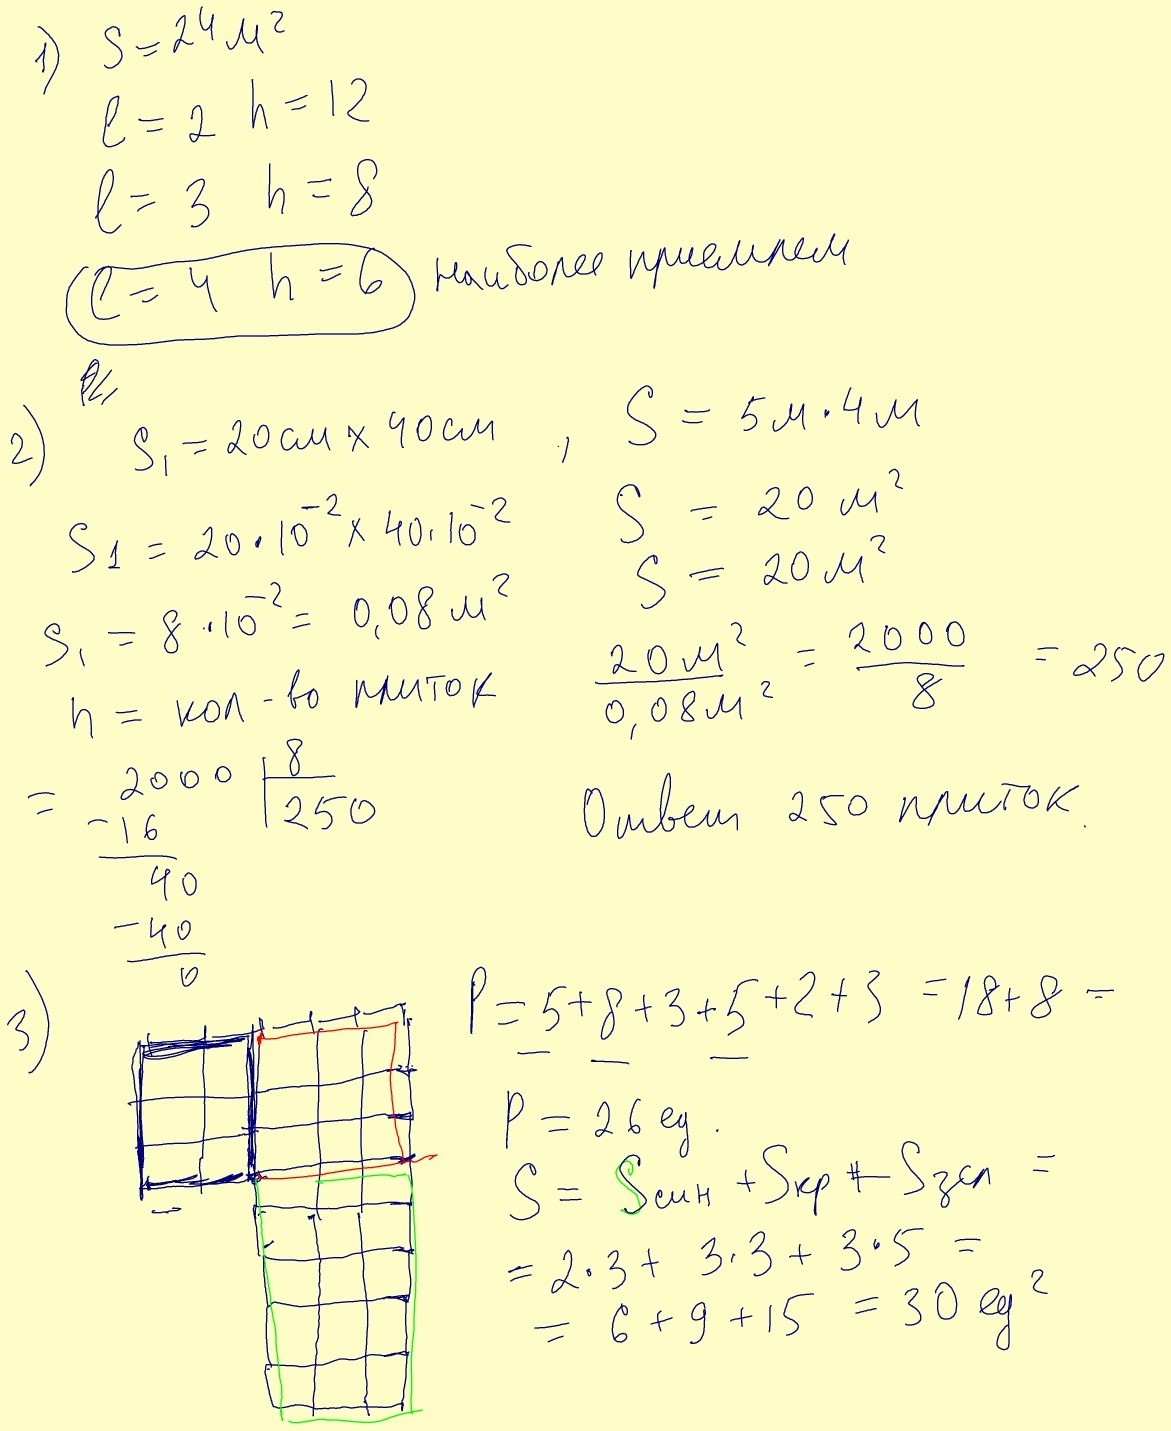 1) S = 24 м²
l = 2 h = 12
l = 3 h = 8
l = 4 h = 6 наиболее приемлем
2) S₁ = 20см × 40см , S = 5м · 4м
S1 = 20 · 10⁻² × 40 · 10⁻² S = 20 м²
S₁ = 8 · 10⁻² = 0,08 м² S = 20 м²
n = кол-во плиток 20 м² / 0,08 м² = 2000 / 8 = 250
= 2000 | 8
- 16 250
40
- 40
0
Ответ 250 плиток.
3) P = 5 + 8 + 3 + 5 + 2 + 3 = 18 + 8 =
P = 26 ед.
S = Sсин + Sкр + Sзел =
= 2 · 3 + 3 · 3 + 3 · 5 =
= 6 + 9 + 15 = 30 ед²